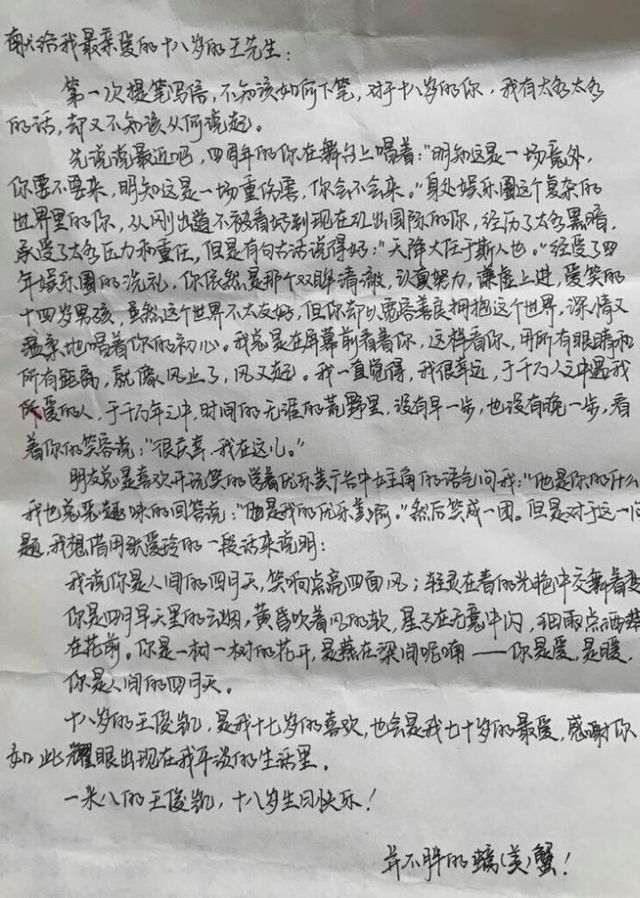 献给我最亲爱的十八岁的王先生：
第一次提笔写信，不知该如何下笔，对于十八岁的你，我有太多太多
的话，却又不知该从何说起。
先说说最近吧，四周年的你在舞台上唱着："明知这是一场意外，
你要不要来，明知这是一场重伤害，你会不会来。"身处娱乐圈这个复杂的
世界里的你，从刚出道不被看好到现在走出国际的你，经历了太多黑暗，
承受了太多压力和重任，但是有句古话说得好："天降大任于斯人也。"经受了四
年娱乐圈的洗礼，你依然是那个双眸清澈，认真努力，谦虚上进，爱笑的
十四岁男孩，虽然这个世界不太友好，但你却以宽容善良拥抱这个世界，深情又
温柔地唱着你的初心。我总是在屏幕前看着你，这样看你，用所有眼睛和
所有距离，就像风止了，风又起。我一直觉得，我很幸运，于千万人之中遇我
所爱的人，于千万年之中，时间的无涯的荒野里，没有早一步，也没有晚一步，看
着你的笑容说："很庆幸，我在这儿。"
朋友总是喜欢开玩笑的学着优乐美广告中女主角的语气问我："他是你的什么
我也总恶趣味的回答说："他是我的优乐美啊。"然后笑成一团。但是对于这一问
题，我想借用张爱玲的一段话来说明：
我说你是人间的四月天，笑响点亮四面风；轻灵在春的光艳中交舞着变
你是四月早天里的云烟，黄昏吹着风的软，星子在无意中闪，细雨点洒
在花前。你是一树一树的花开，是燕在梁间呢喃——你是爱，是暖，
你是人间的四月天。
十八岁的王俊凯，是我十七岁的喜欢，也会是我七十岁的最爱，感谢你
如此耀眼出现在我平淡的生活里。
一米八的王俊凯，十八岁生日快乐！
并不胖的螃(美)蟹！